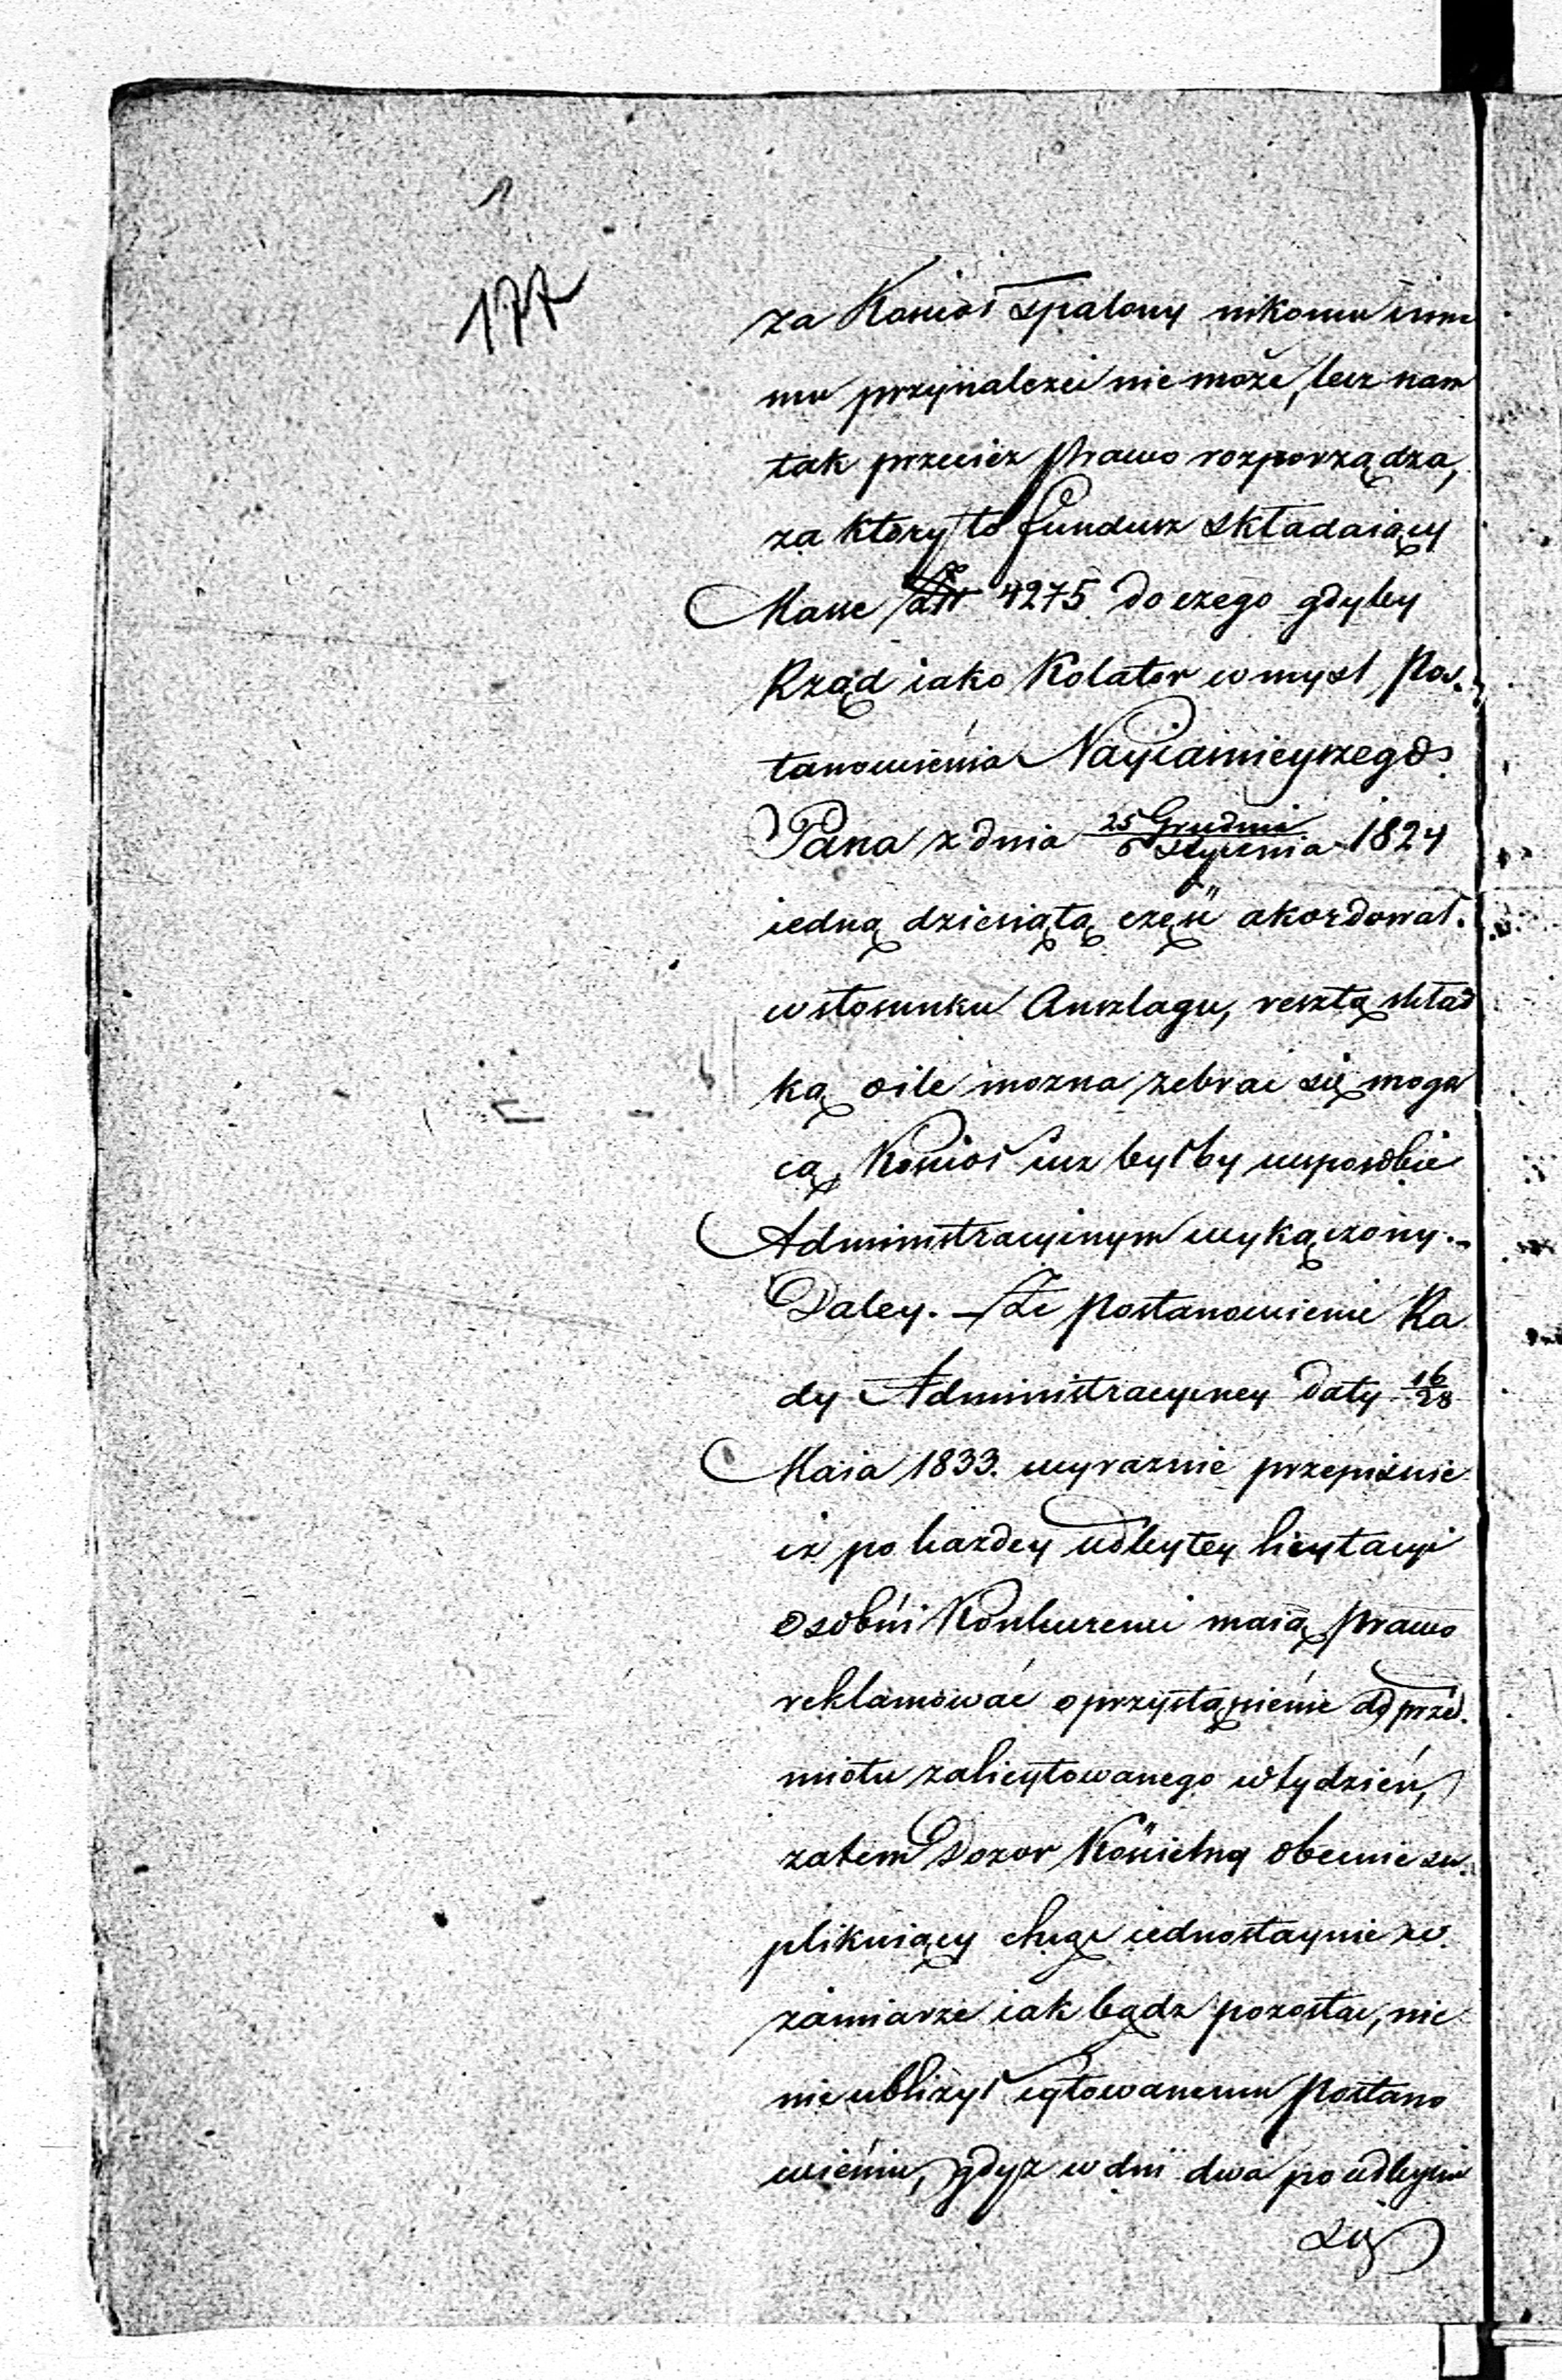 177
za Kościoł spalony nikomu inne
mu przynależeć nie może, lecz nam
tak przecież prawo rozporządza,
za ktory to fundusz składaiący
Massę 4275 do czego gdyby
Rząd iako Kolator w mysl Pos.
tanowienia Nayiaśnieyszego
Pana z dnia 25 Grudnia / 6 Stycznia 1824
iedną dziesiątą część akordował.
w stosunku Anszlagu, resztą skład
ką o ile mozna zebrać się mogą
cą, Kościoł iuz byłby w sposobie
Administracyinym wykączony.
Daley. – Że Postanowienie Ra
dy Administracyiney daty 16/28
Maia 1833. wyraznie przepisuie
iz po kazdey odbytey licytacyi
osobni Konkurenci maią prawo
reklamować o przystąpienie do przed.
miotu zalicytowanego w tydzień,
zatem Dozor Kościelny obecnie su.
plikuiący chcąc iednostaynie w
zamiarze iak bądz pozostać, nic
nie ubliżył cytowanemu Postano
wieniu, gdyż w dni dwa po odbyciu